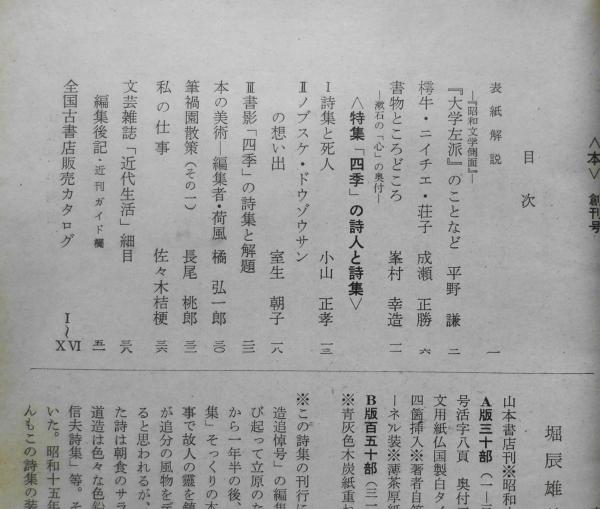 <本> 創刊号
目次
表紙解説 一
―『昭和文学側面』―
『大学左派』のことなど 平野 謙 二
樗牛・ニイチエ・荘子 成瀬 正勝 六
書物ところどころ 峯村 幸造 一一
―漱石の「心」の奥付―
<特集「四季」の詩人と詩集>
Ⅰ 詩集と死人 小山 正孝 一三
Ⅱ ノブスケ・ドウゾウサン
の想い出 室生 朝子 一八
Ⅲ 書影「四季」の詩集と解題 二二
本の美術―編集者・荷風 橘 弘一郎 三〇
筆禍園散策(その一) 長尾 桃郎 三二
私の仕事 佐々木桔梗 三六
文芸雑誌「近代生活」細目 三八
編集後記・近刊ガイド欄 五一
全国古書店販売カタログ Ⅰ~ⅩⅥ
堀辰雄
山本書店刊※昭和
A版三十部(一―三
号活字八頁 奥付
文用紙仏国製白タイ
四箇挿入※著者自筆
ーネル装※薄茶厚紙
B版百五十部(三一
※青灰色木炭紙重ね
※この詩集の刊行に
造追悼号」の編集
び起って立原のた
から一年半の後、
集」そっくりの本
事で故人の霊を鎮
が追分の風物をデ
ると思われるが、
た詩は朝食のサラ
道造は色々な色鉛
信夫詩集」等。そ
いた。昭和十五年
んもこの詩集の装